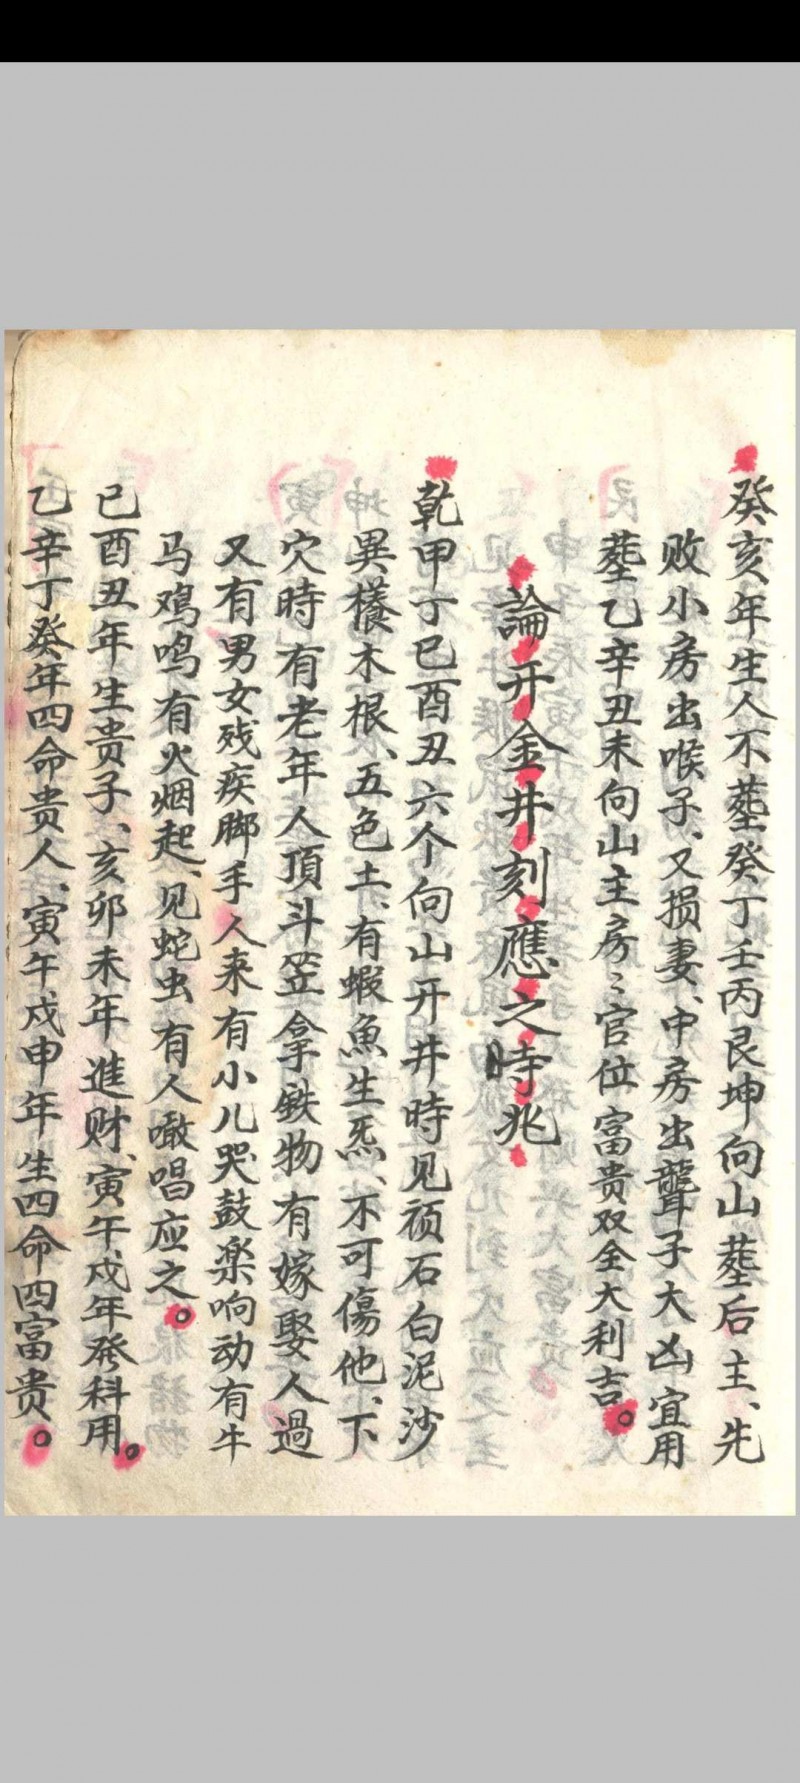 癸亥年生人不塟癸丁壬丙艮坤向山塟后主、先
败小房出喉子、又损妻、中房出聾子大凶宜用
塟乙辛丑未向山主房〻官位富贵双全大利吉。
論开金井刻應之時兆
乾甲丁巳酉丑六个向山开井時见顽石白泥沙
異樣木根、五色土、有蝦魚生炁、不可傷他、下
穴時有老年人頂斗笠拿铁物有嫁娶人過
又有男女残疾脚手人来有小儿哭鼓楽响动有牛
马鸡鸣有火烟起、见蛇虫有人噉唱应之。
巳酉丑年生贵子、亥卯未年進财、寅午戍年癸科用。
乙辛丁癸年四命贵人、寅午戍申年生四命四富贵。